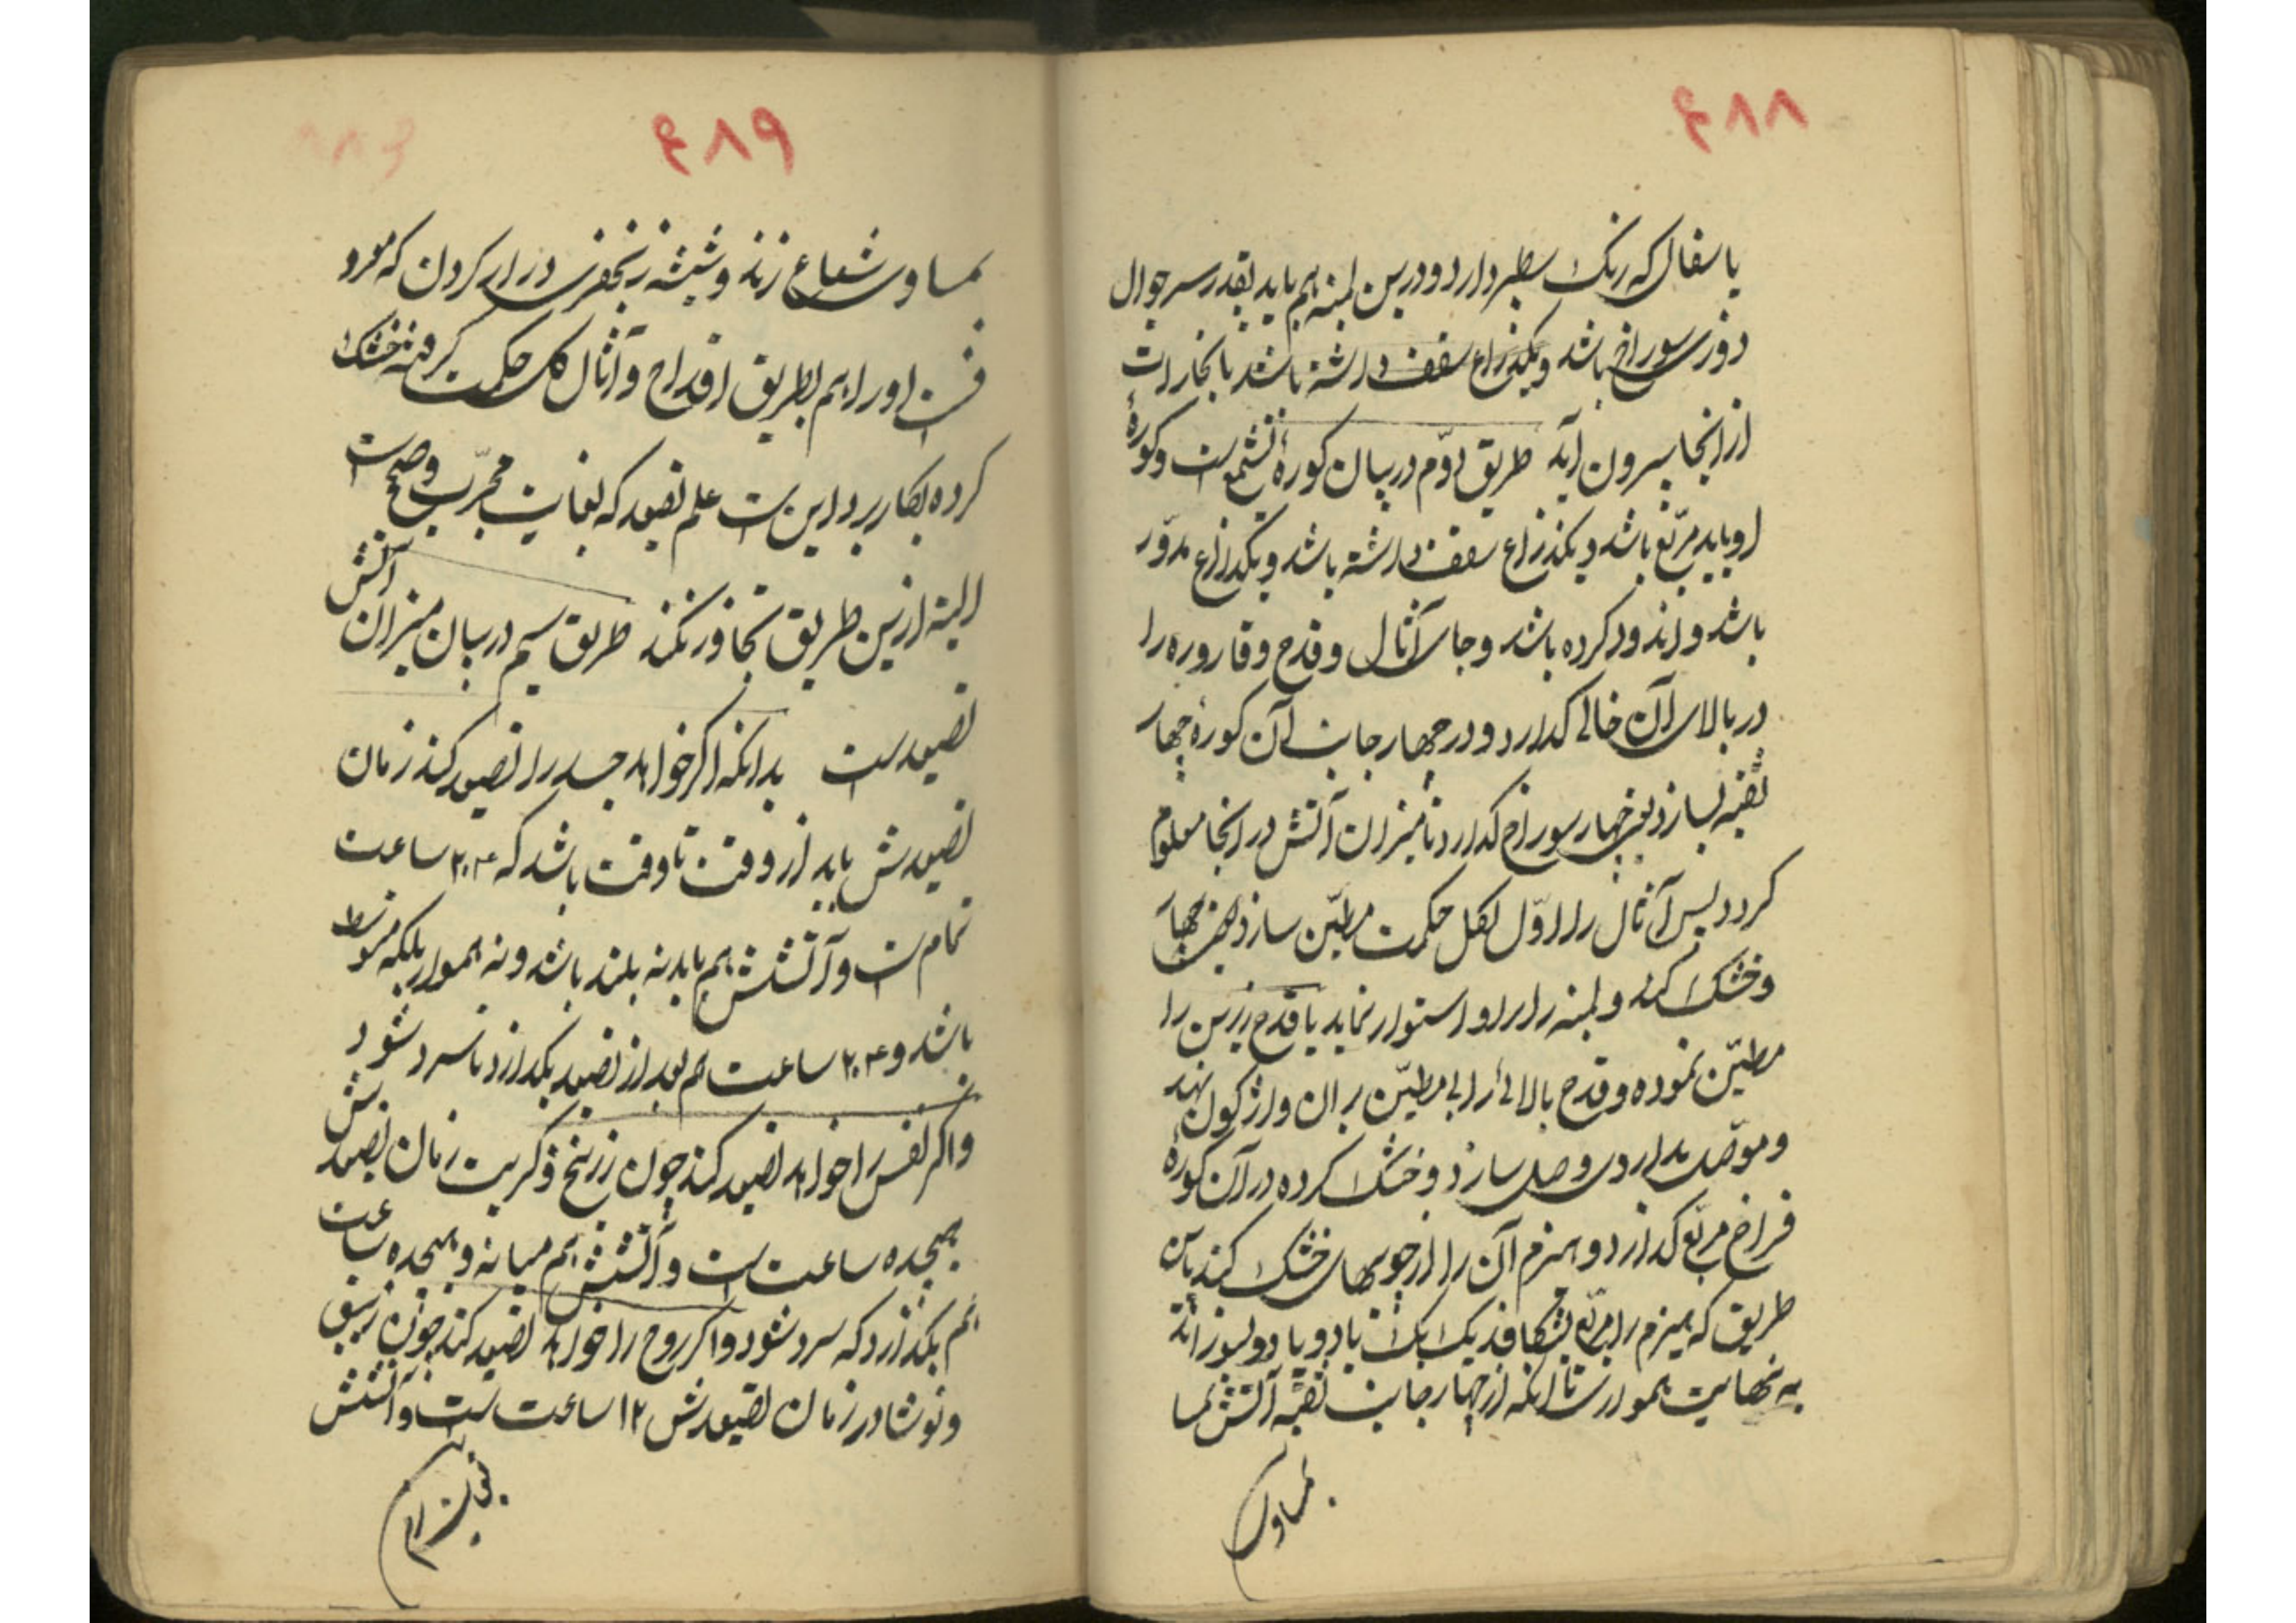 ۶۸۸
یا سفال که رنک سطبر دارد و درین لبنه هم باید بقدر سر جوال
دوزی سوراخ باشد و یکذراع سقف داشته باشد تا بخارات
از انجا بیرون آید طریق دوّم در بیان کورهٔ تشمع است و کورهٔ
او باید مربّع باشد و یکذراع سقف داشته باشد و یکذراع مدوّر
باشد و اندود کرده باشد و جای آثال و قدح و قاروره را
در بالای آن خالی کدارد و در چهار جانب آن کورهٔ چهار
ثقبه بسازد یعنی چهار سوراخ کدارد تا میزان آتش در انجا معلوم
کردد پس آثال را اوّل بکل حکمت مطیّن سازد
و خشک کند و لبنه را بر او استوار نماید یا قدح زیرین را
مطیّن نموده و قدح بالائی را بی مطیّن بر ان واژکون نهد
و موّصل بداروی وصل سازد و خشک کرده در آن کورهٔ
فراخ مربّع کدارد و هیزم آن را از چوبهای خشک کند باین
طریق که هیزم را مربّع بشکافد یک یک یا دو یا دو بسوزاند
به نهایت هموار است تا انکه از چهار جانب ثقبه آتش بما
بمساوی
۶۸۹
بمساوی شعاع زند و شیشه زنجفر در ار کردن که مورد
فن است او را هم بطریق اقداح و آثال کل حکمت کرفته خشک
کرده بکار برد این است علم تصعید که بغایت مجرّب و صحیح است
البته ازین طریق تجاوز نکند طریق سیم در بیان میزان آتش
تصعید است بدانکه اکر خواهد جسد را تصعید کند زمان
تصعیدش باید از وقت تا وقت باشد که ۲۰۴ ساعت
تمام است و آتشش هم باید نه بلند باشد و نه هموار بلکه متوسط
باشد و ۲۰۴ ساعت هم بعد از تصعید بکدارد تا سرد شود
و اکر نفس را خواهد تصعید کند چون زرنیخ و کبریت زمان تصعیدش
هیجده ساعت است و آتشش هم میانه و هیجده ساعت
هم بکذارد که سرد شود و اکر روح را خواهد تصعید کند چون زیبق
و نوشادر زمان تصعیدش ۱۲ ساعت است و آتشش